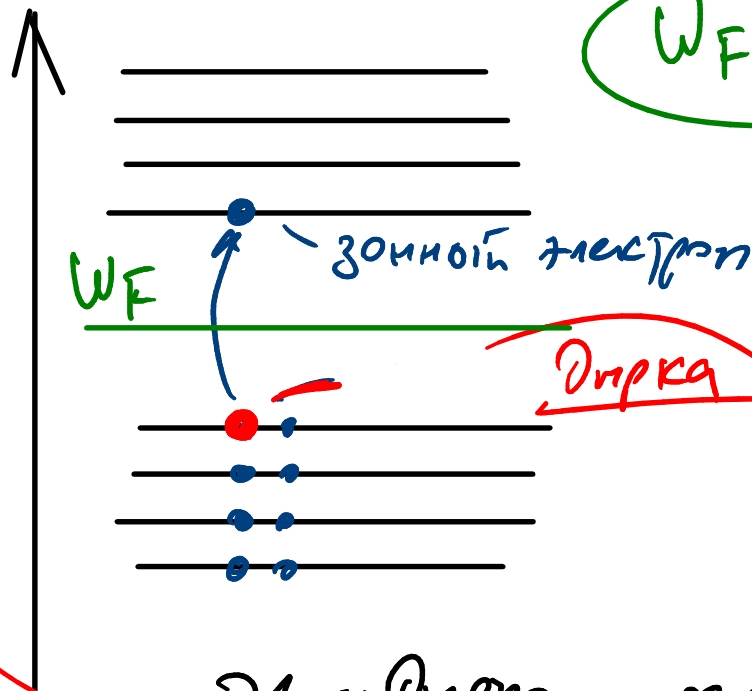 W_F
зонный электрон
W_F
Дырка